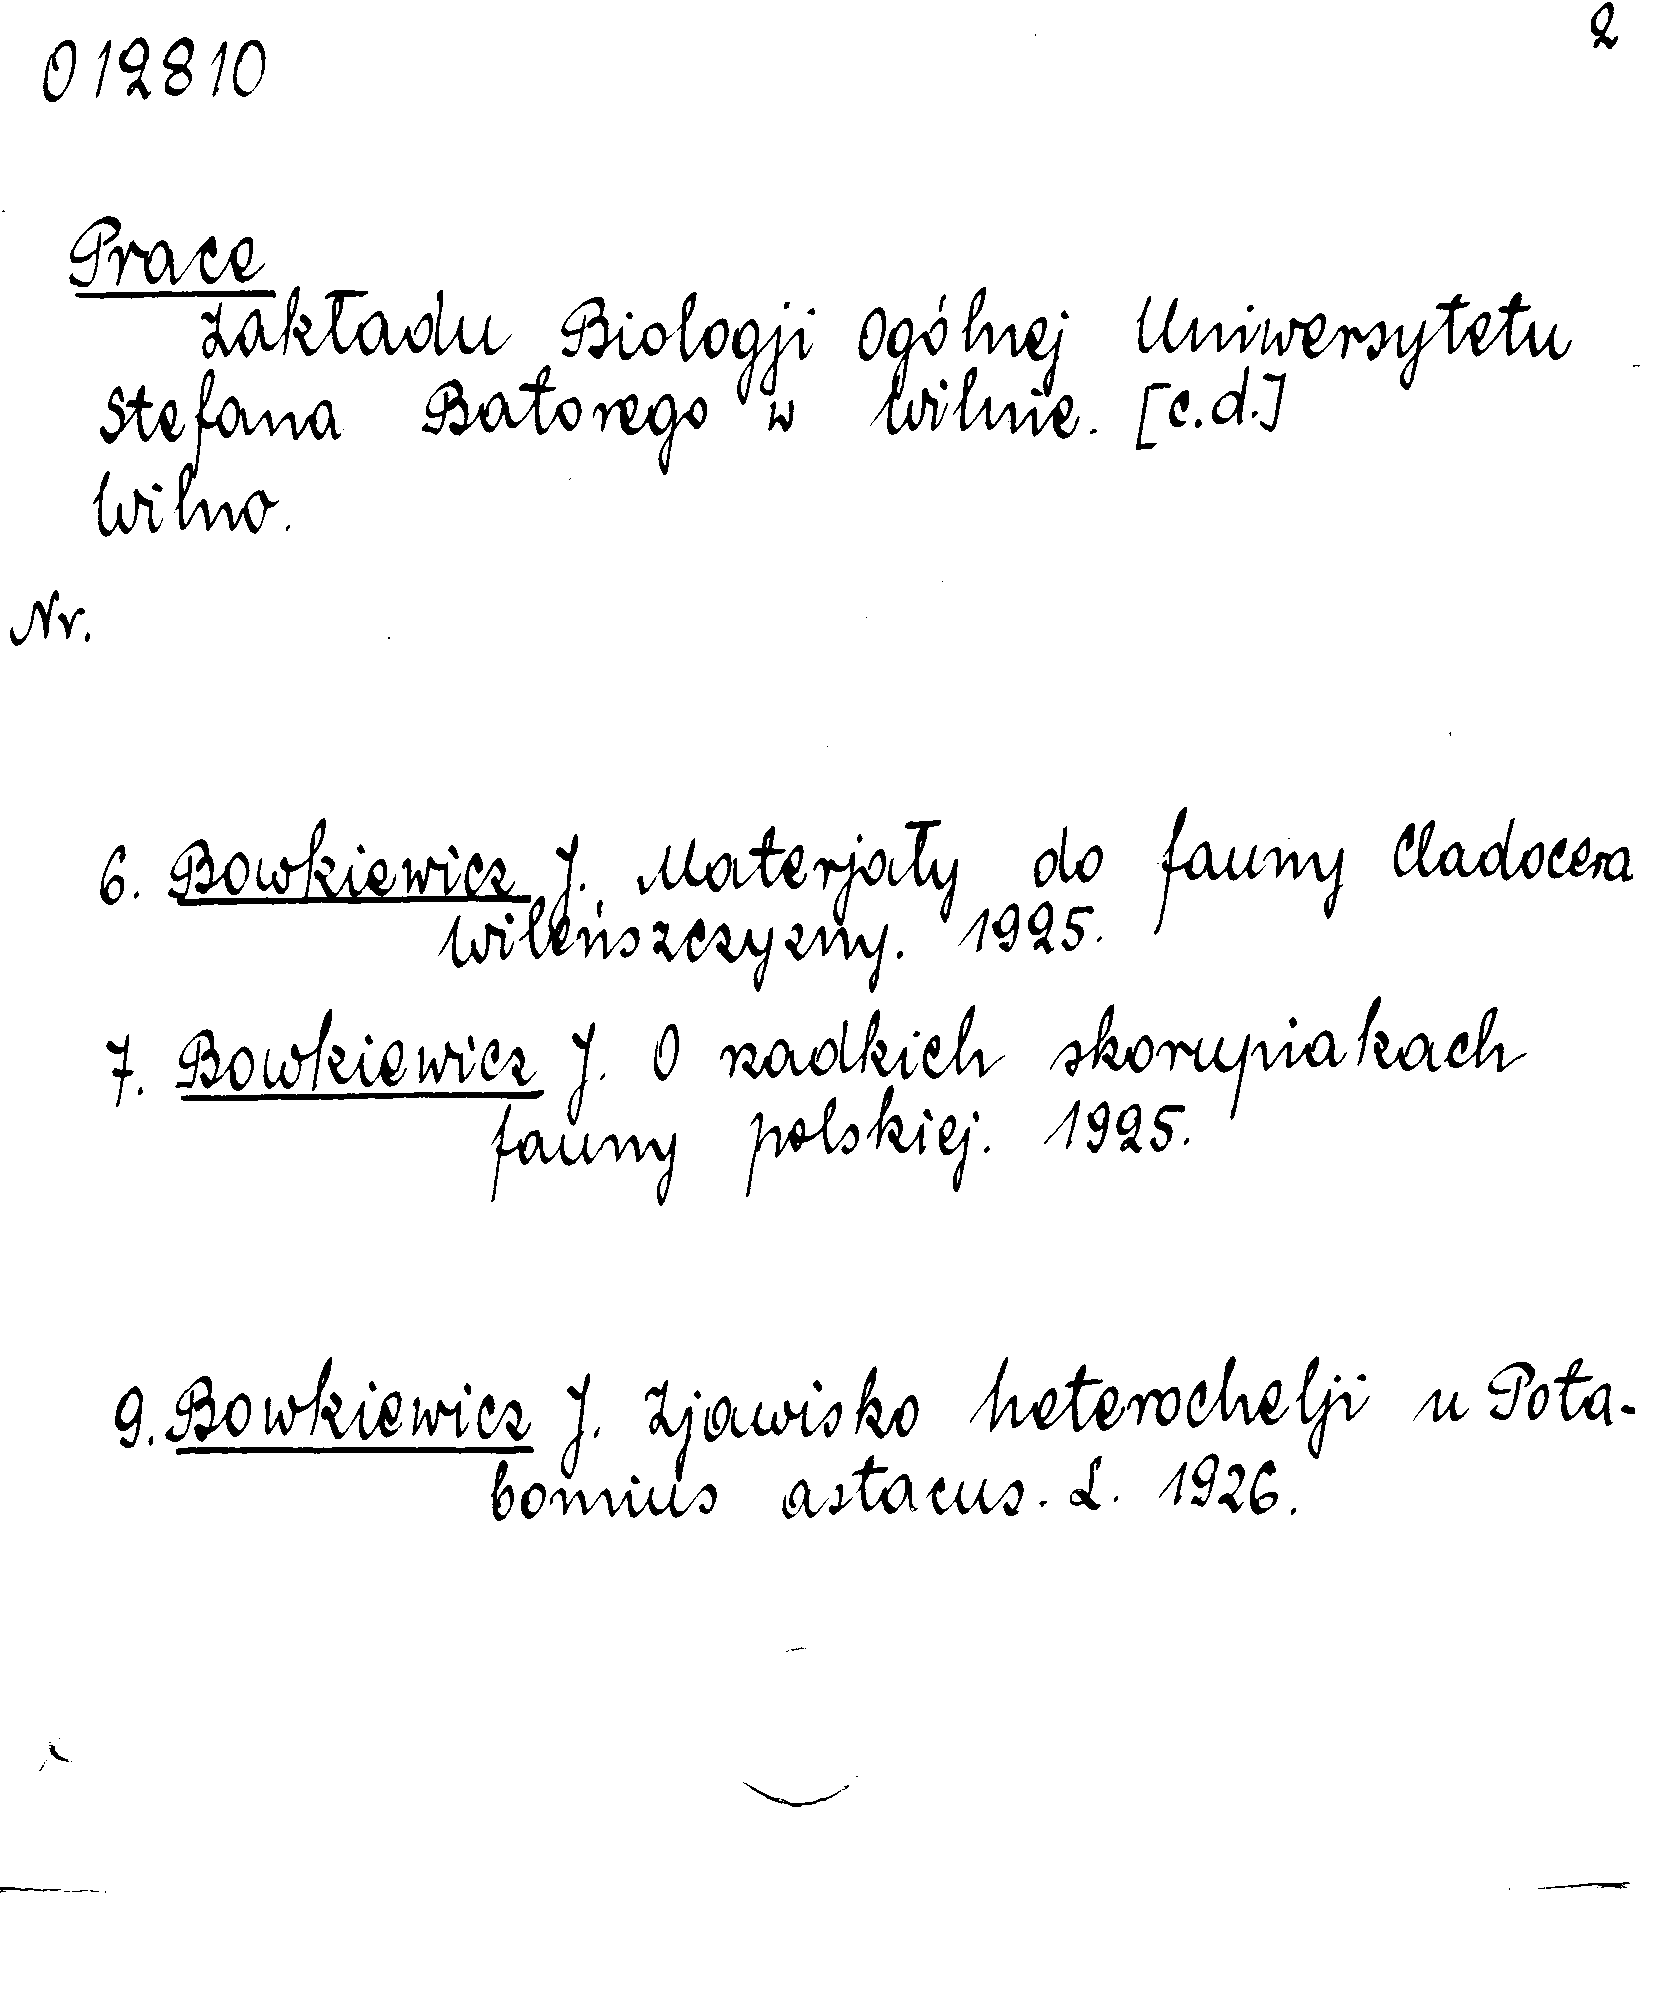 012810
2
Prace
Zakładu Biologji Ogólnej Uniwersytetu
Stefana Batorego w Wilnie. [c.d.]
Wilno.
Nr.
6. Bowkiewicz J. Materjały do fauny Cladocera
Wileńszczyzny. 1925.
7. Bowkiewicz J. O rzadkich skorupiakach
fauny polskiej. 1925.
9. Bowkiewicz J. Zjawisko heterochelji u Pota-
bomius astacus. L. 1926.